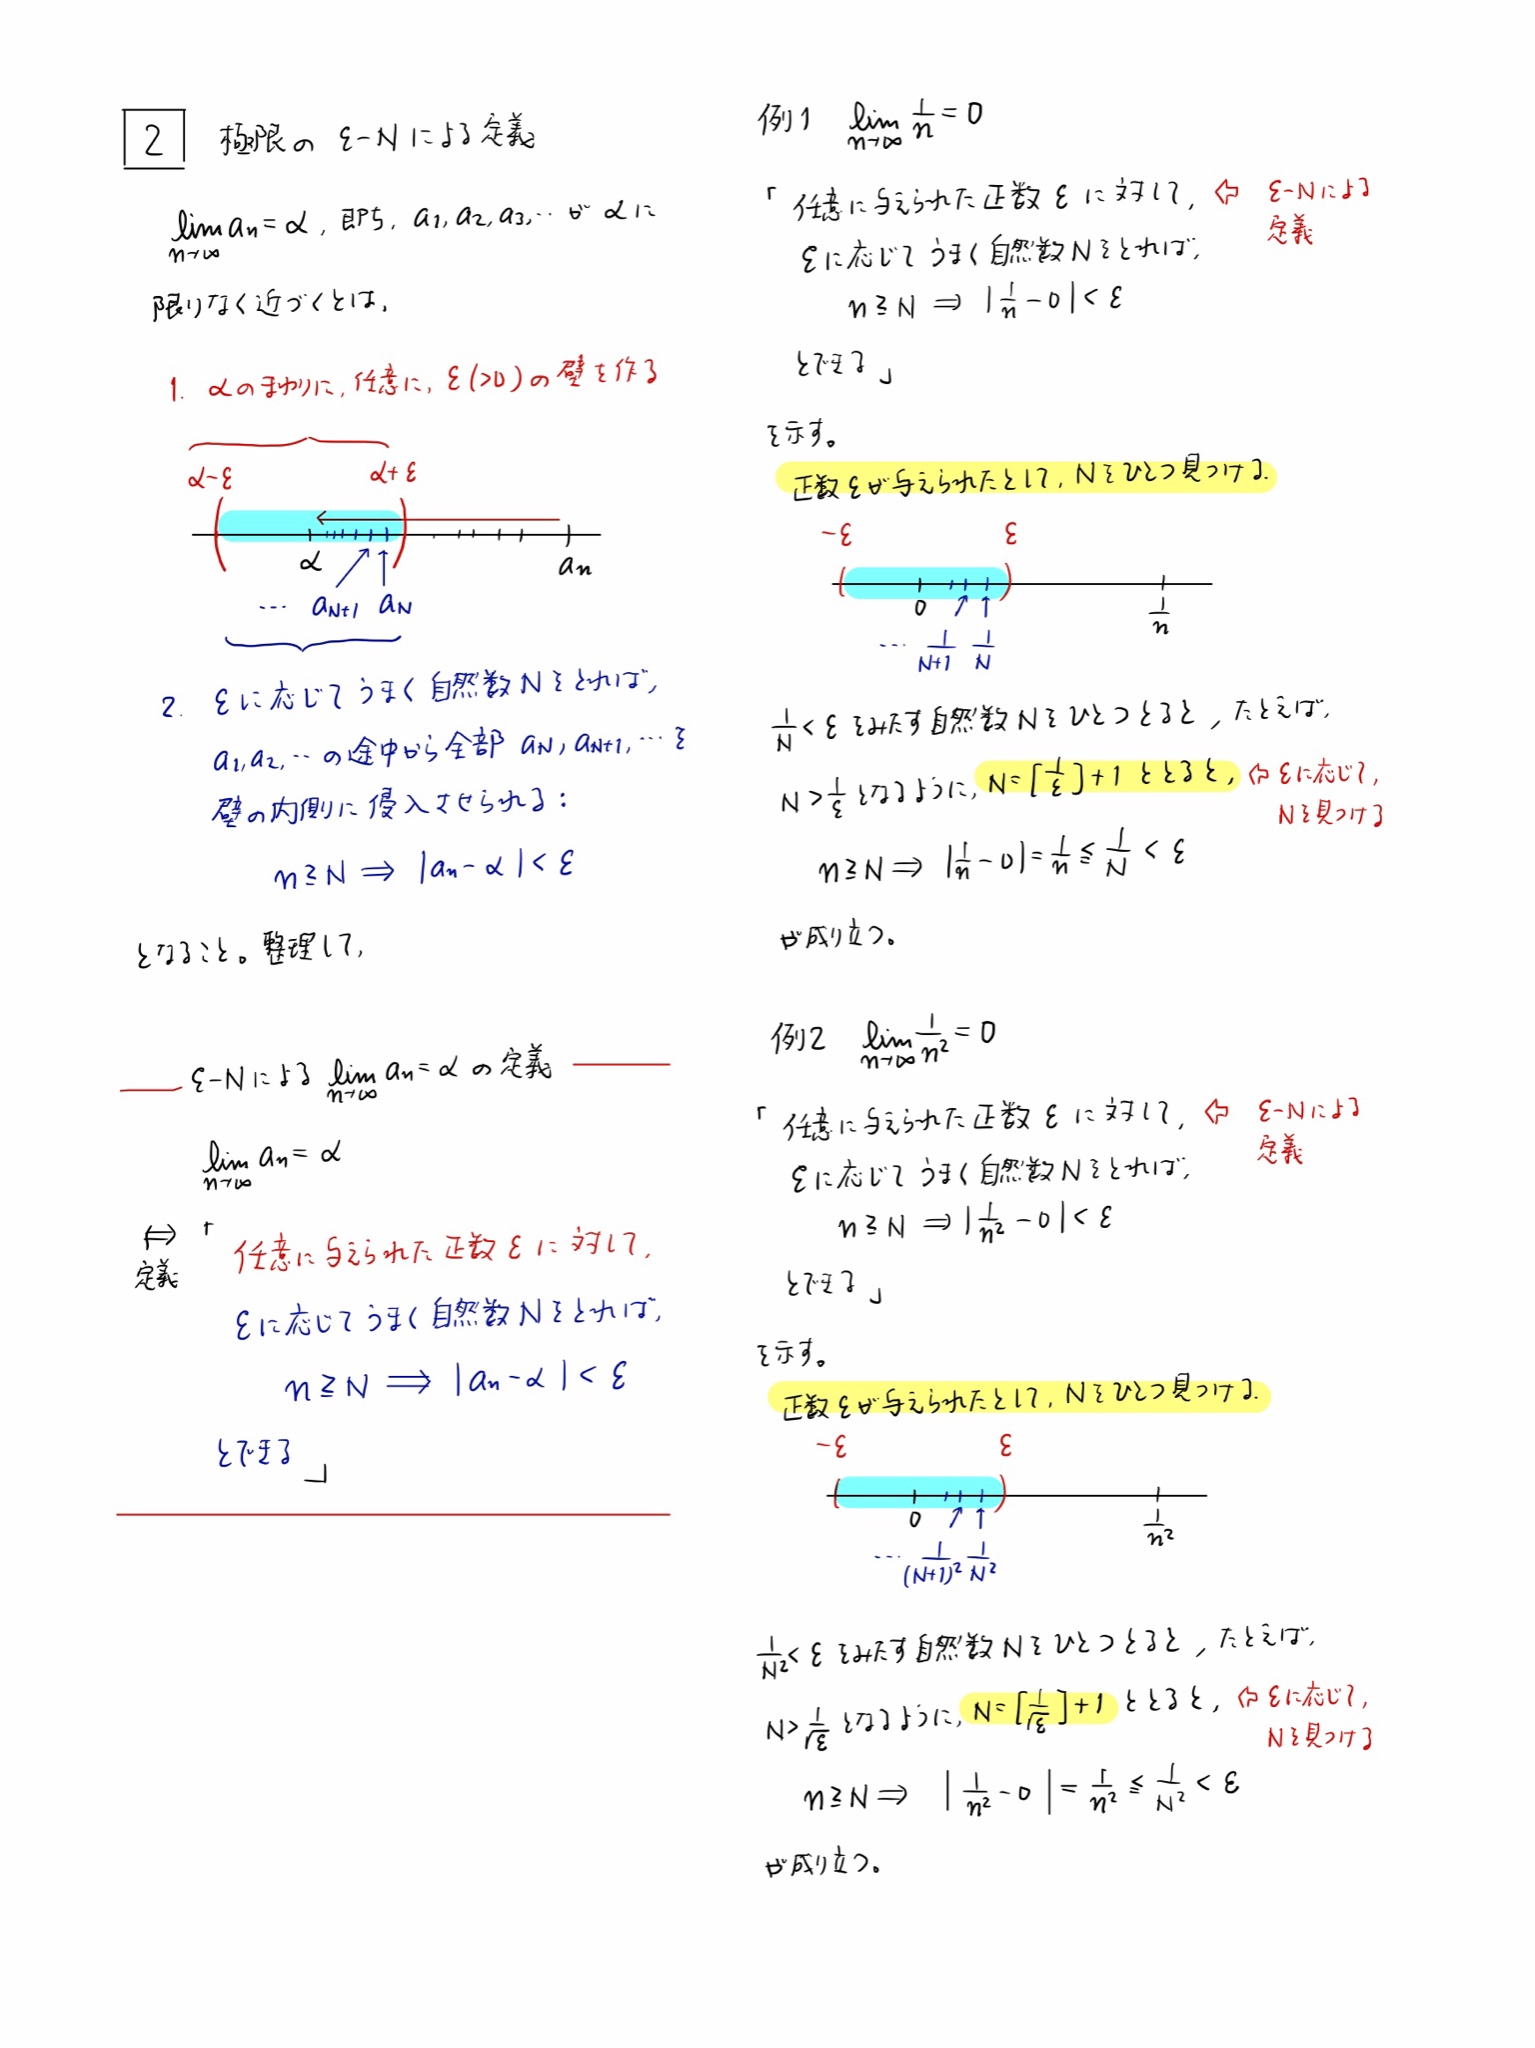 2 極限の ε-N による定義
lim n→∞ an = α, 即ち, a1, a2, a3, … が α に
限りなく近づくとは,
1. αのまわりに, 任意に, ε(>0) の壁を作る
α-ε α+ε
α an
… aN+1 aN
2. εに応じてうまく自然数Nをとれば,
a1, a2, … の途中から全部 aN, aN+1, … を
壁の内側に侵入させられる:
n≧N ⇒ |an-α| < ε
となること。整理して,
ε-Nによる lim n→∞ an = α の定義
lim n→∞ an = α
⇔ 定義 「任意に与えられた正数 ε に対して,
εに応じてうまく自然数Nをとれば,
n≧N ⟹ |an-α| < ε
とできる」
例1 lim n→∞ 1/n = 0
「任意に与えられた正数 ε に対して, ⇦ ε-Nによる
定義
εに応じてうまく自然数Nをとれば,
n≧N ⇒ |1/n - 0| < ε
とできる」
を示す。
正数 ε が与えられたとして, Nをひとつ見つける.
-ε ε
0 1/n
… 1/N+1 1/N
1/N < ε をみたす自然数Nをひとつとると, たとえば,
N > 1/ε となるように, N = [1/ε]+1 ととると, ⇦ εに応じて,
Nを見つける
n≧N ⇒ |1/n - 0| = 1/n ≦ 1/N < ε
が成り立つ。
例2 lim n→∞ 1/n² = 0
「任意に与えられた正数 ε に対して, ⇦ ε-Nによる
定義
εに応じてうまく自然数Nをとれば,
n≧N ⇒ |1/n² - 0| < ε
とできる」
を示す。
正数 ε が与えられたとして, Nをひとつ見つける.
-ε ε
0 1/n²
… 1/(N+1)² 1/N²
1/N² < ε をみたす自然数Nをひとつとると, たとえば,
N > 1/√ε となるように, N = [1/√ε]+1 ととると, ⇦ εに応じて,
Nを見つける
n≧N ⇒ |1/n² - 0| = 1/n² ≦ 1/N² < ε
が成り立つ。